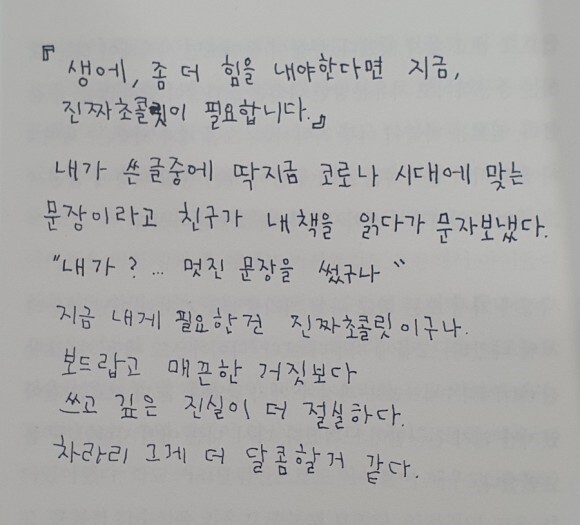 『생에, 좀 더 힘을 내야한다면 지금,
진짜초콜릿이 필요합니다.』
내가 쓴 글중에 딱지금 코로나 시대에 맞는
문장이라고 친구가 내 책을 읽다가 문자보냈다.
"내가 ? ... 멋진 문장을 썼구나"
지금 내게 필요한건 진짜초콜릿이구나.
보드랍고 매끈한 거짓보다
쓰고 깊은 진실이 더 절실하다.
차라리 그게 더 달콤할거 같다.